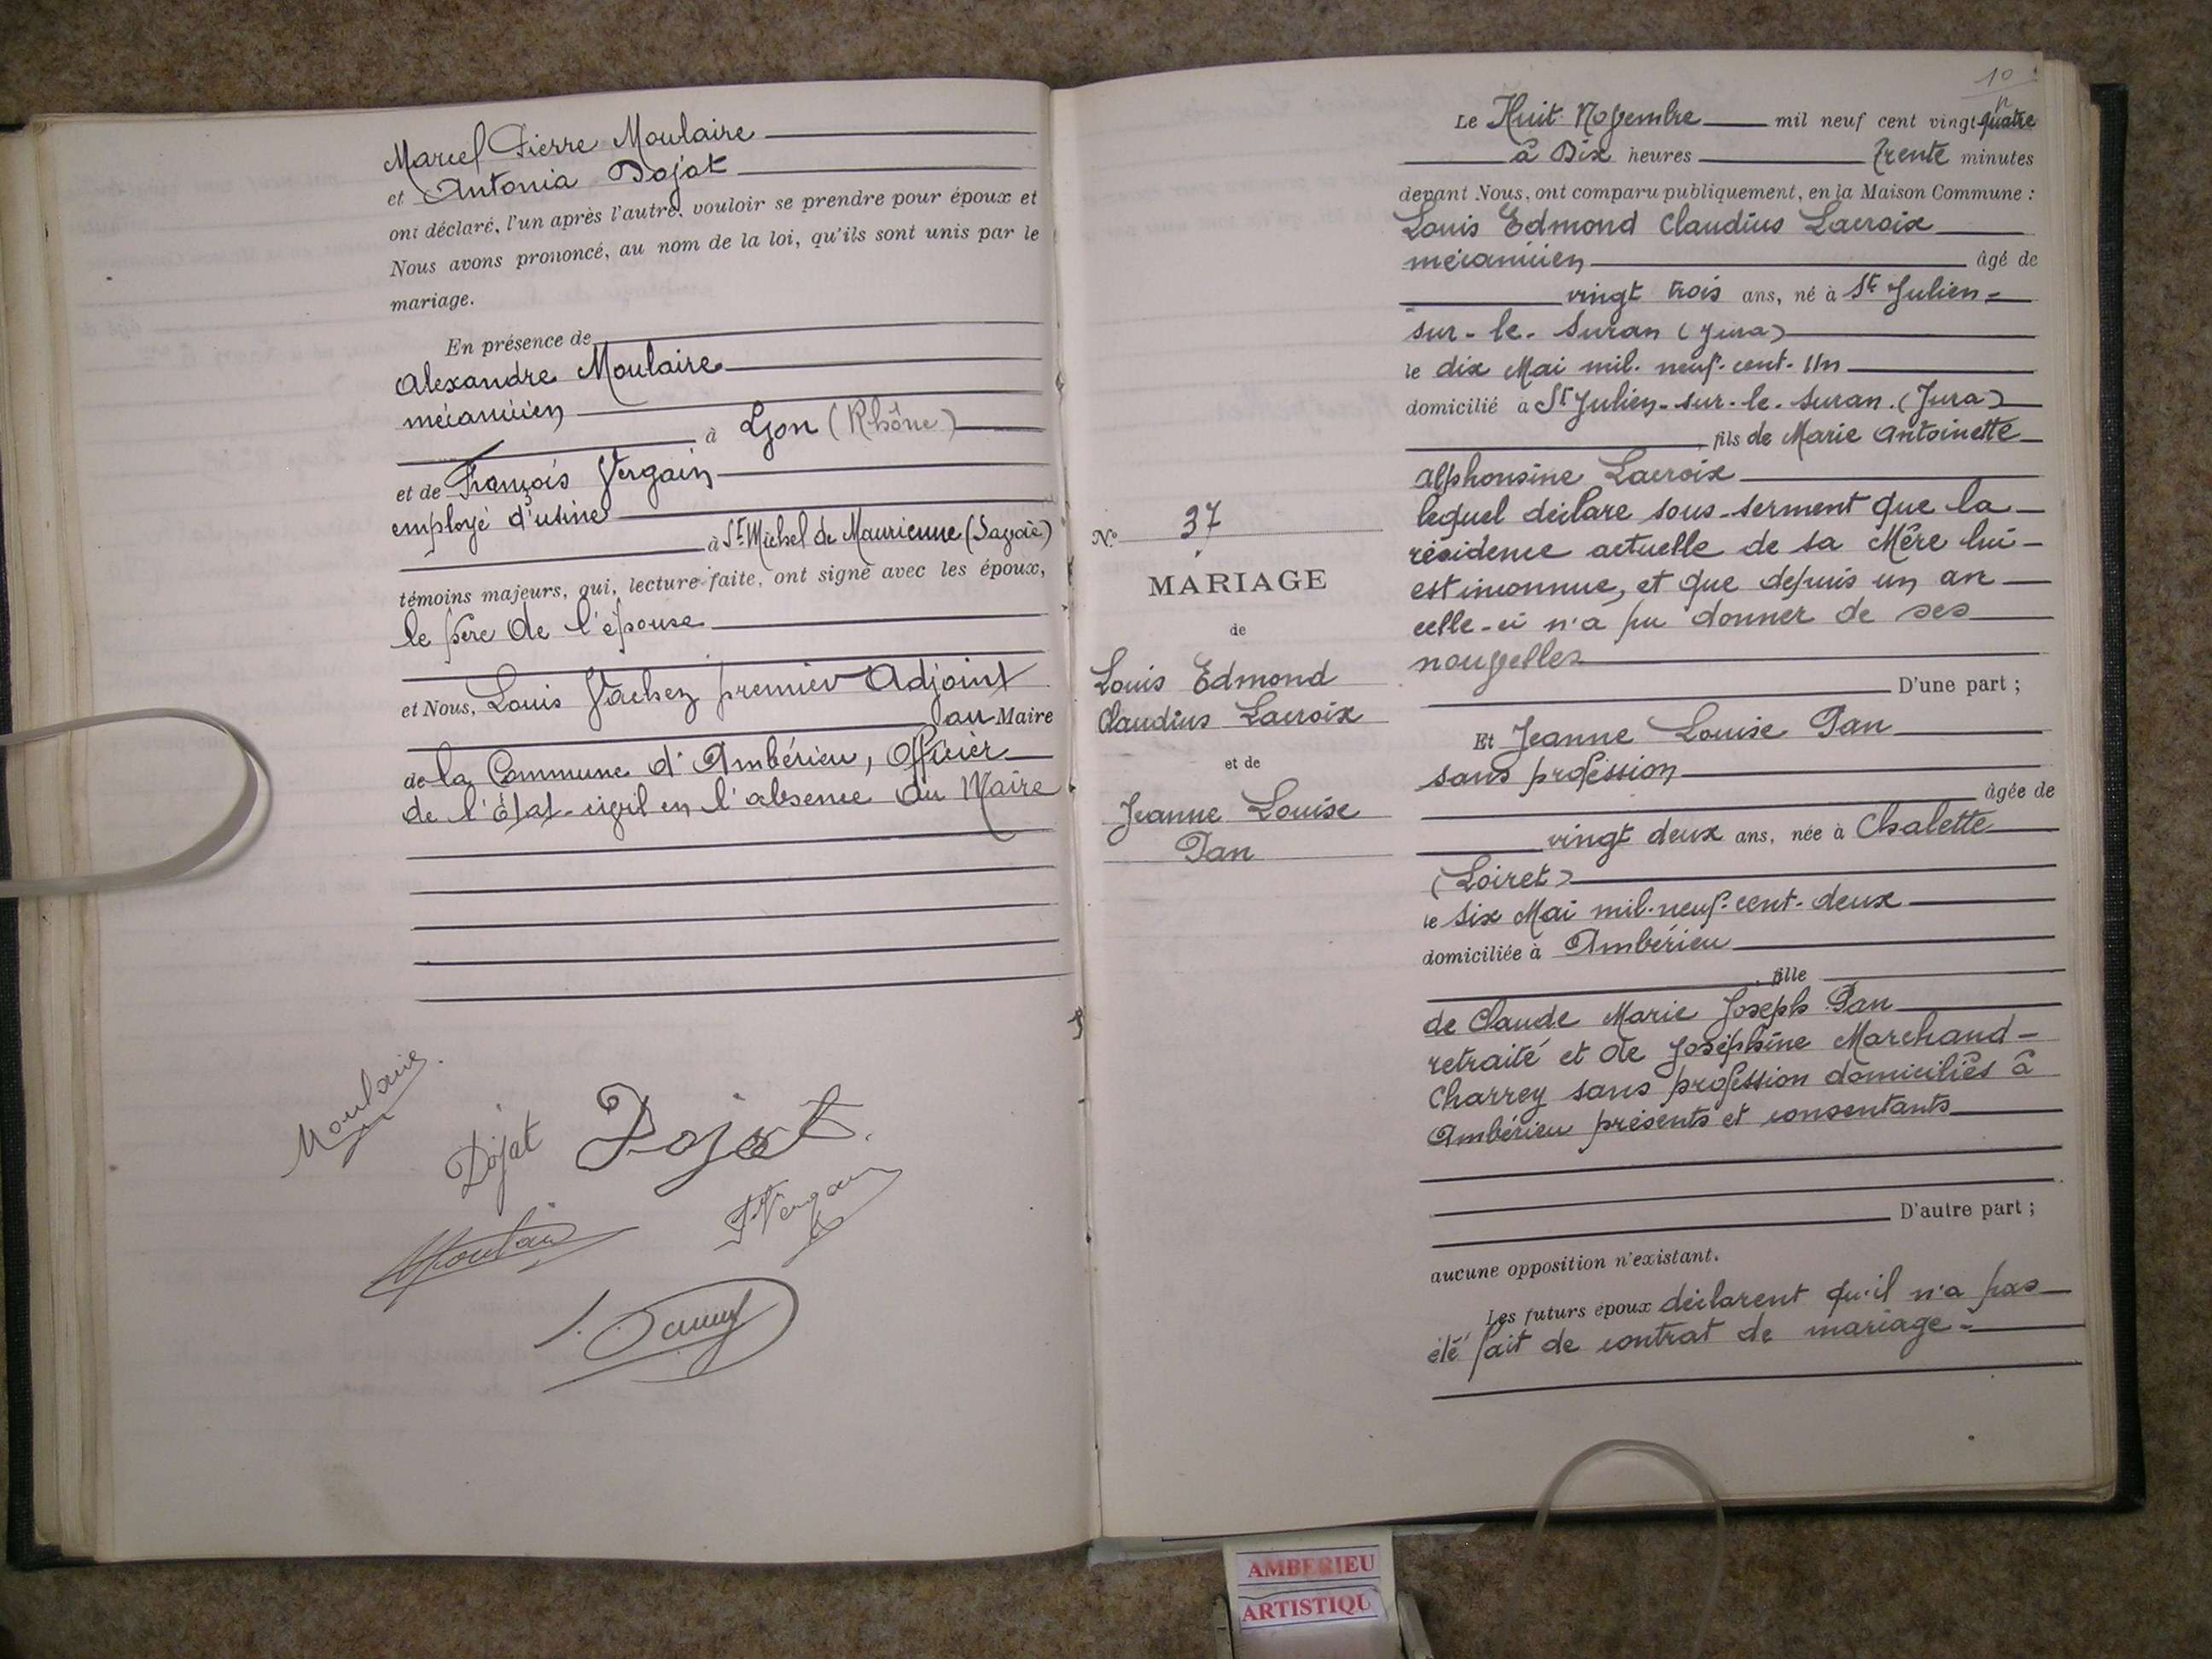 Marcel Pierre Moulaire
et Antonia Dojat
ont déclaré, l'un après l'autre, vouloir se prendre pour époux et
Nous avons prononcé, au nom de la loi, qu'ils sont unis par le
mariage.
En présence de
Alexandre Moulaire
mécanicien
à Lyon (Rhône)
et de François Vergain
employé d'usine
à St Michel de Maurienne (Savoie)
témoins majeurs, qui, lecture faite, ont signé avec les époux,
le père de l'épouse
et Nous, Louis Vachez premier Adjoint
au Maire
de la Commune d'Ambérieu, Officier
de l'État-civil en l'absence du Maire
Moulaire
Dojat Dojat.
10
Le Huit Novembre mil neuf cent vingt quatre
à Dix heures trente minutes
devant Nous, ont comparu publiquement, en la Maison Commune :
Louis Edmond Claudius Lacroix
mécanicien âgé de
vingt trois ans, né à St Julien-
sur-le-Suran (Jura)
le dix Mai mil-neuf-cent-Un
domicilié à St Julien-sur-le-Suran (Jura)
fils de Marie Antoinette
Alphonsine Lacroix
lequel déclare sous-serment que la
résidence actuelle de sa Mère lui
est inconnue, et que depuis un an
celle-ci n'a pu donner de ses
nouvelles
D'une part ;
Et Jeanne Louise Pan
sans profession
âgée de
vingt deux ans, née à Chalette
(Loiret)
le six Mai mil-neuf-cent-deux
domiciliée à Ambérieu
, fille
de Claude Marie Joseph Pan
retraité et de Joséphine Marchand-
Charrey sans profession domiciliés à
Ambérieu présents et consentants
D'autre part ;
aucune opposition n'existant.
Les futurs époux déclarent qu'il n'a pas
été fait de contrat de mariage-
N° 37
MARIAGE
de
Louis Edmond
Claudius Lacroix
et de
Jeanne Louise
Pan
AMBERIEU
ARTISTIQU